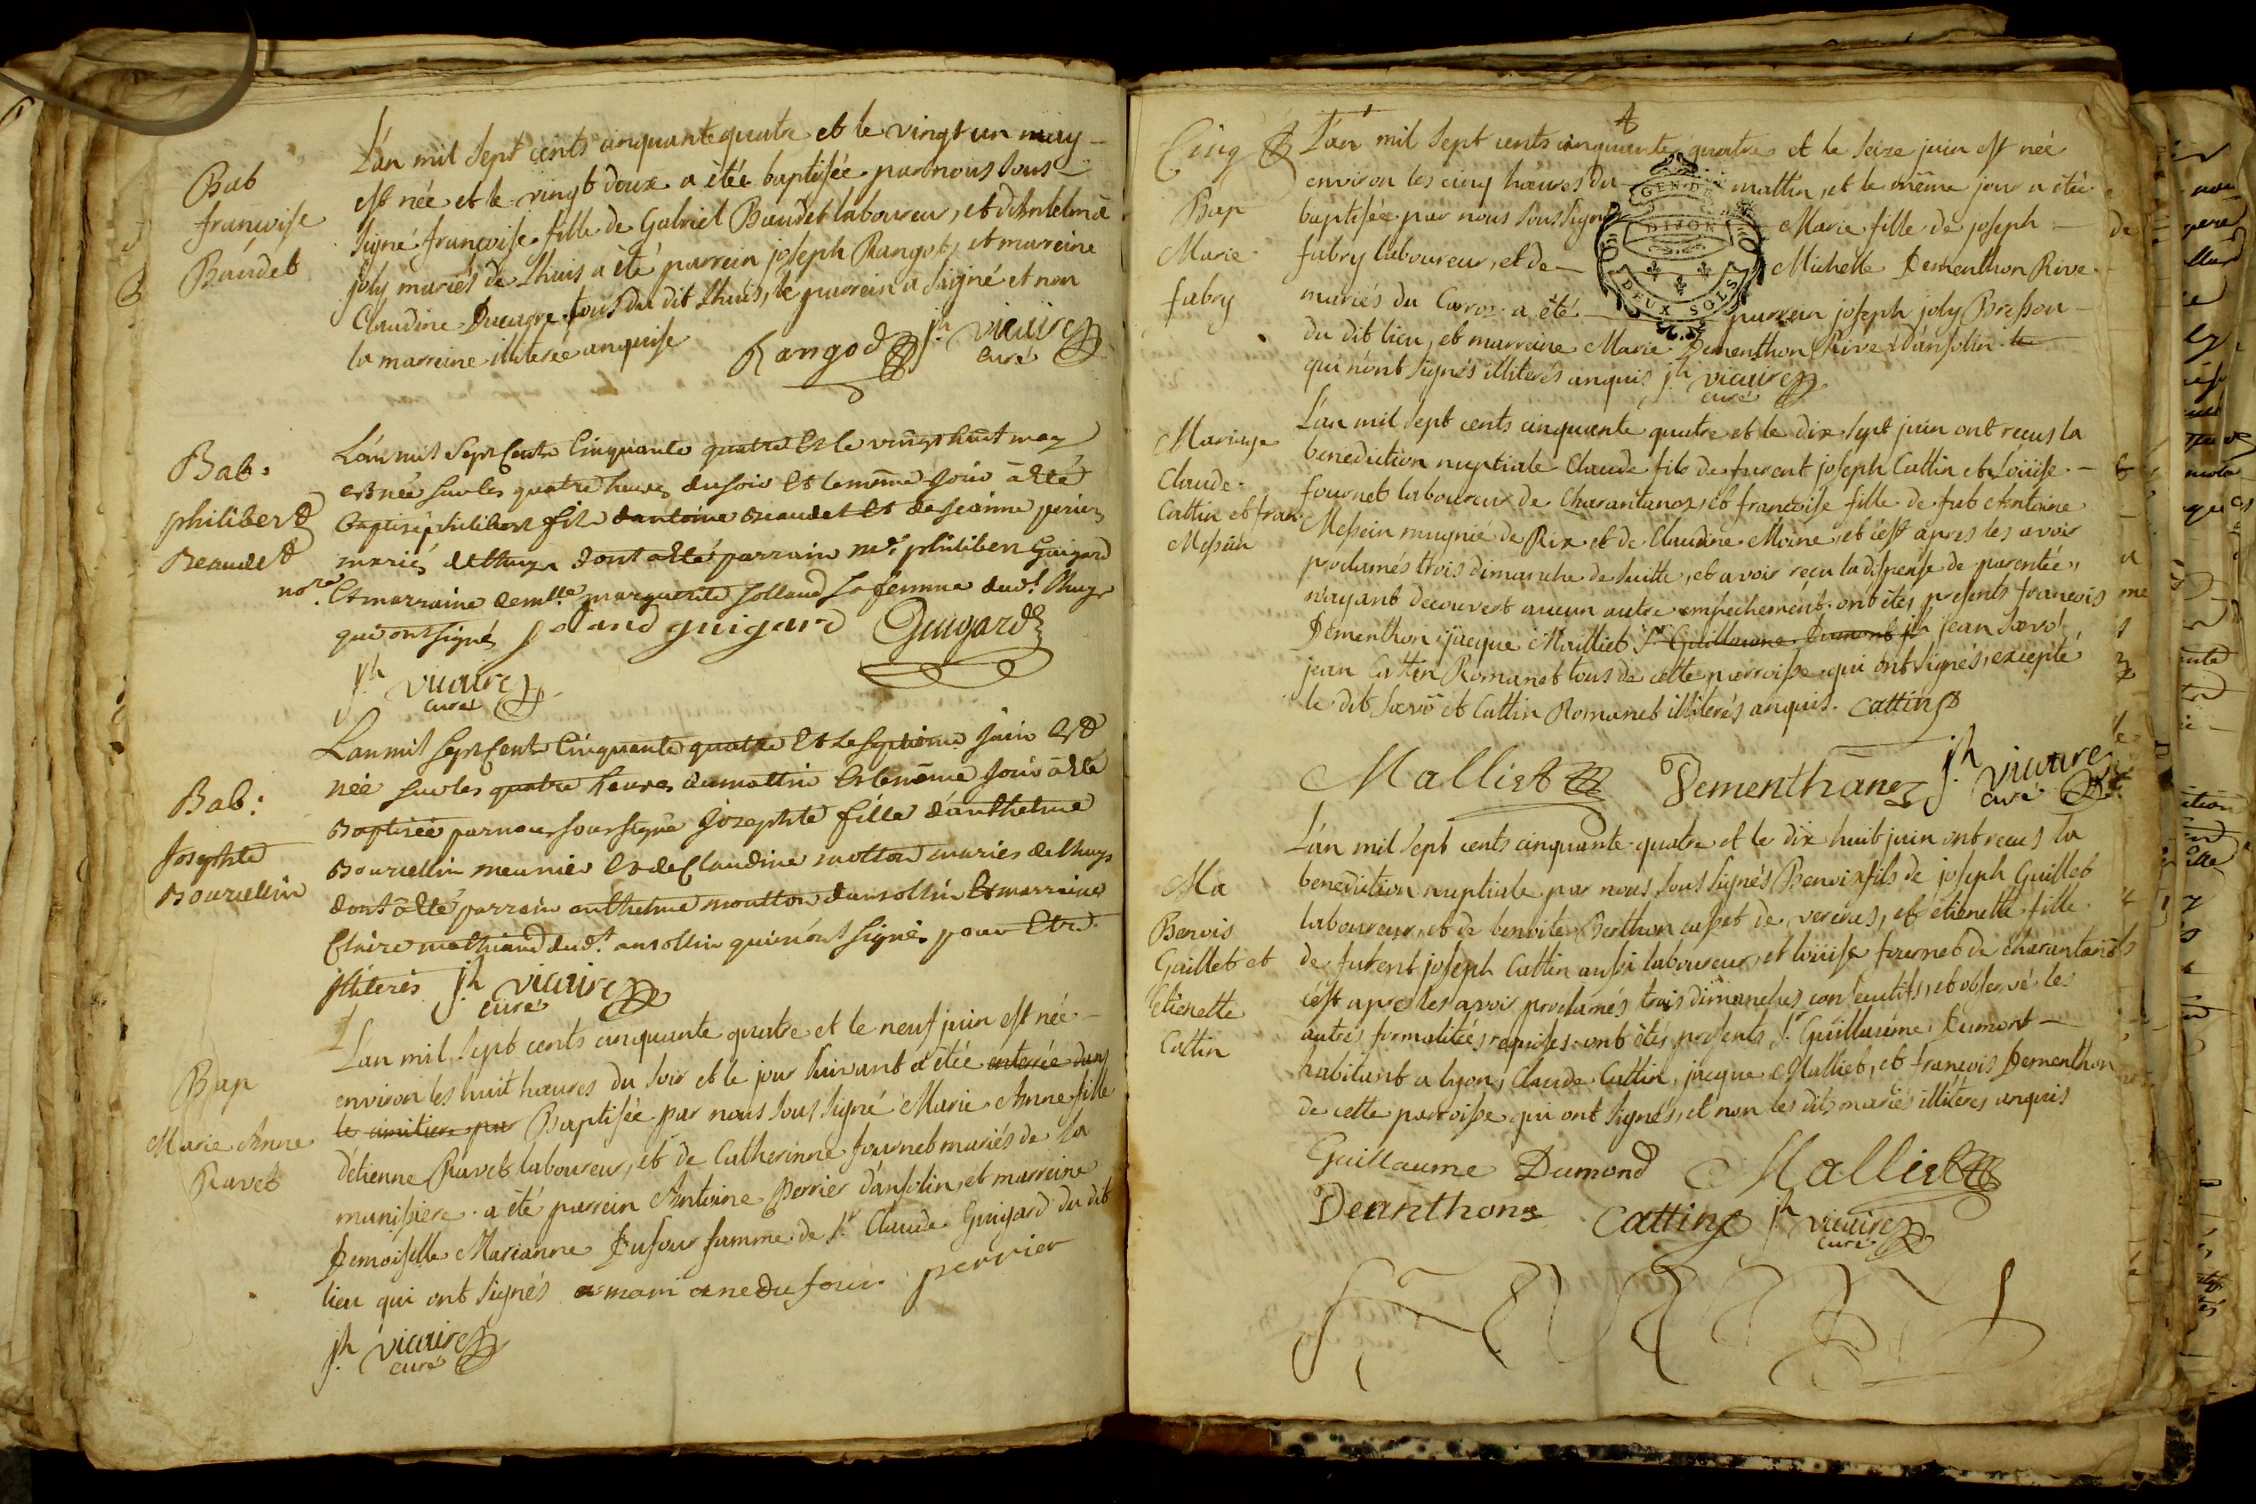 Bab
françoise
Baudet
L'an mil sept cents cinquante quatre et le vingt un may
est née et le vingt deux a étée baptisée par nous sous
signé françoise fille de Gabriel Baudet laboureur, et d'Antelmë
joly mariés de Lhuis a été parrein joseph Rangot, et marreine
Claudine Ducagre tous du dit Lhuis, le parrein a signé et non
la marreine illiterée anquise
Rangod jh vicaire
curé
Bab:
philiberd
Beaudet
L'an mil Sept Cents Cinquante quatre Et le vingt huit may
est née sur les quatre heures du soir Et le même jour a été
Baptisé philibert fils d'antoine Beaudet Et de jeanne perier
mariés de Lhuys dont a été parrain me. philibert Guigard
nore. Et marraine demlle. marguerite jolland sa femme dud.t Lhuys
qui ont signé jolland guigard Guigard
jh vicaire
curé
Bab:
Josephte
Bourcellin
L'an mil Sept Cents Cinquante quatre Et le septième juin Est
née sur les quatre heures du mattin Et le même jour a été
Baptisée par nous soussigné josephte fille d'anthelme
Bourcellin meunier Et de Claudine moltton mariés de Lhuys
dont a été parrain anthelme moutton d'ansollin Et marraine
Claire mathiand dud.t ansollin qui n'ont signés pour Etre
illiterés jh vicaire
curé
Bap
Marie Anne
Ravet
L'an mil sept cents cinquante quatre et le neuf juin est née
environ les huit hœures du soir et le jour suivant a étée enterrée dans
le cimitiere par Baptisée par nous sous signé Marie Anne fille
d'étienne Ravet laboureur, et de Catherinne fournet mariés de la
manissiere. a été parrein Antoine Perrier d'ansolin, et marreine
Demoiselle Marianne Dufour famme de Sr Claude Guigard du dit
lieu qui ont signés mariane du four perrier
jh vicaire
curé
Cinq
Bap
Marie
fabry
L'an mil sept cents cinquante quatre et le seize juin est née
environ les cinq hœures du mattin, et le même jour a étée
baptisée par nous sous signé Marie fille de joseph
fabry laboureur, et de Michelle Dementhon Rive
mariés du Carroz. a été parrein joseph joly Bresson
du dit lieu, et marraine Marie Dementhon Rive d'ansolin
qui n'ont signés illiterés anquis jh vicaire
curé
GEN. DE
DIJON
DEUX SOLS
Mariage
Claude
Cattin et fran
Messein
L'an mil sept cents cinquante quatre et le dix sept juin ont reçus la
benediction nuptiale Claude fils de furent joseph Cattin et Loüise
fournet laboureur de Charantanoz, et françoise fille de fut Antoine
Messein magnié de Rix et de Claudine Moine, et c'est apres les avoir
proclamés trois dimanche de suitte, et avoir reçu la dispense de parentée,
n'ayant decouvert aucun autre empechement. ont étés presents françois
Dementhon, jacque Malliet Sr Guillaume Dumont jean Sœvo
jean Cattin Romanet tous de cette parroisse, qui ont signés, excepté
le dit Sœvo et Cattin Romanet illiterés anquis. Cattin
Malliet Dementhane jh vicaire
curé
Ma
Benois
Guillet et
Etienette
Cattin
L'an mil sept cents cinquante quatre et le dix huit juin ont recus la
benediction nuptiale par nous sous signés Benoix fils de joseph Guillet
laboureur, et de benoite Berthon de verines, et etienette fille
de furent joseph Cattin aussi laboureur, et loüise fournet de charantanoz
c'est apres les avoir proclamés trois dimanches consecutifs, et observé les
autres formalitées requises. ont étés presents Sr. Guillaume Dumont
habitant a lyon, Claude Cattin, jacque Malliet, et françois Dementhon
de cette parroisse qui ont signés, et non les dits mariés illiterés anquis
Guillaume Dumond Malliet
Demthon Cattin jh vicaire
curé